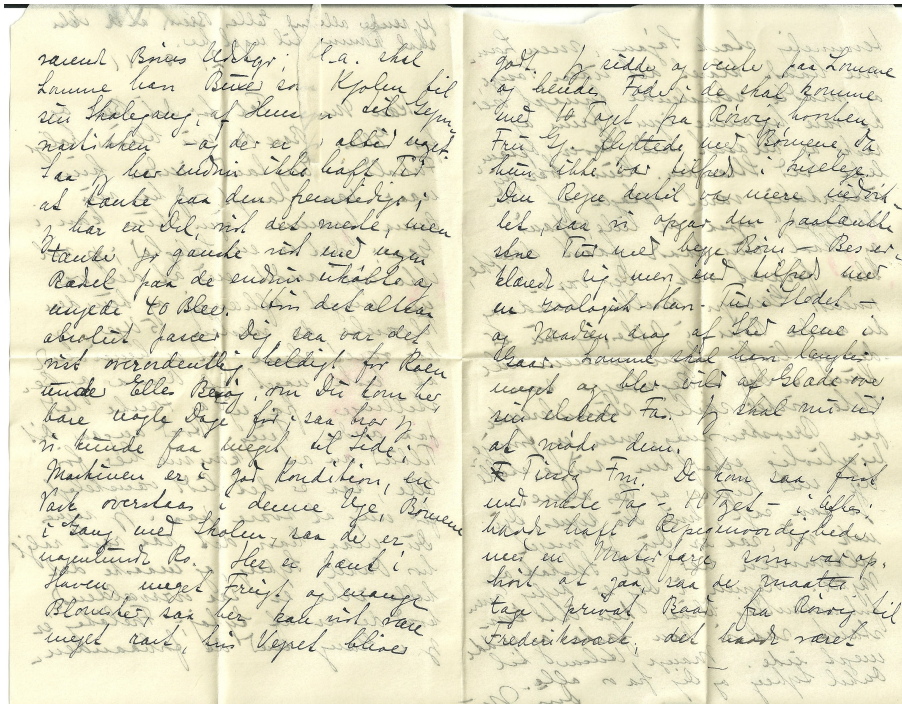 varent, Børnes Udstyr. H.a. skal
Lomme have Buxer som Kjolen til
sin Skolegang, af Hensyn til Gym
nastikken – og der er altid noget.
Saa jeg har endnu ikke haft Tid
at tænke paa den fremtidige;
jeg har en Del, vist det meste, men
tænker jo ganske vist med nogen
Rædsel paa de endnu ukøbte og
usyede 40 Bleer. Om det altsaa
absolut passer Dig saa var det
vist overordentlig heldigt for Roen
under Elles Besøg, om Du kom her
bare nogle Dage før; saa tror jeg
vi kunde faa meget til Side;
Maskinen er i god Kondition, en
Vask overstaas i denne Uge, Børnene
i Gang med Skolen, saa de er
nogenlunde Ro. Her er pænt i
Haven, meget Frugt og mange
Blomster, saa her kan vist være
meget rart, hvis Vejret bliver
godt. Jeg sidder og venter paa Lomme
og hendes Fader; de skal komme
med 10 Toget fra Rørvig, hvorhen
Fru G. flyttede med Børnene, da
hun ikke var tilfreds i
Den Rejse dertil var mere
let, saa vi opgav den paatænkte
store Tur med begge Børn – Bes er
klarede sig mer end tilfreds med
en zoologisk Have-Tur i Stedet –
og drog af Sted alene i
Gaar. Lomme skal have længtes
meget og blev vild af Glæde over
sin elskede Far. Jeg skal nu ud
at møde dem.
Tirsdag Fm. De kom saa først
med næste Tog – 11 Toget – i Aftes;
havde haft Rejsegenvordigheder
med en Motorfærge som var op-
hørt at gaa, saa de maatte
tage privat Baad fra Rørvig til
Frederiksværk; det havde været